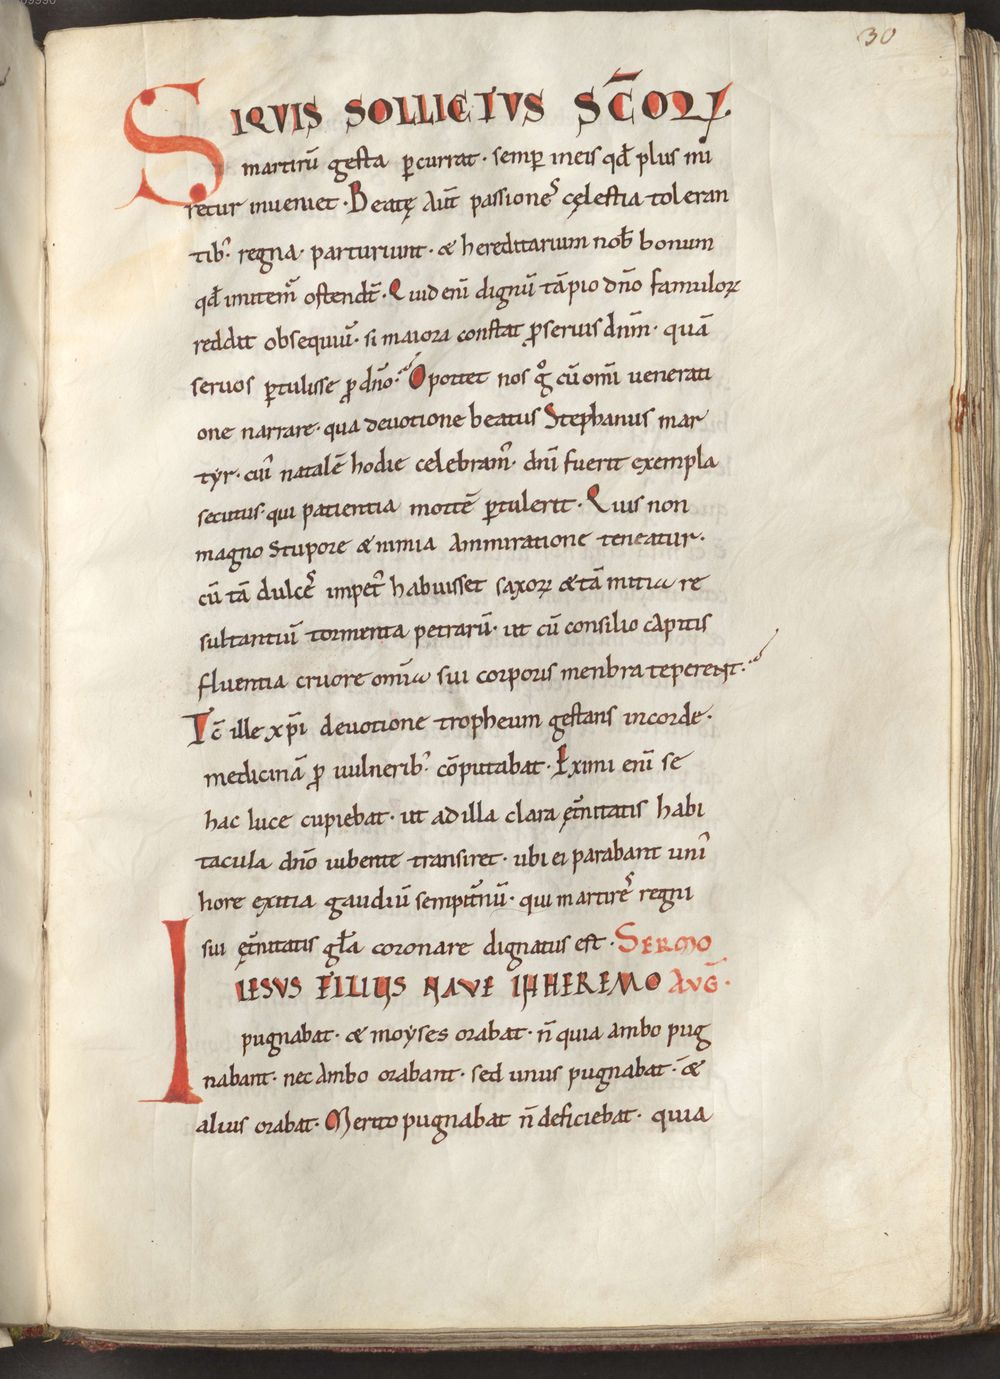 30
SIQVIS SOLLICITVS SC̄ORꝜ
martirū gesta ꝑcurrat · semꝑ ineis qđ plus mi
retur inueniet · Beatę Aut̄ passiones cęlestia toleran
tibꝰ regna · parturiunt · & hereditarium nob̄ bonum
qđ imitemꝰ ostendt̄ · Quid eni̅ dignū tā pio dn̄o famuloꝝ
reddit obsequiū · si maiora constat ꝓseruis dnm̄ · quā
seruos ꝑtulisse ꝓ dn̄o · Oportet nos gͦ cū om̄i uenerati
one narrare · qua deuotione beatus Stephanus mar
tyr · cuiꝰ natalē hodie celebramꝰ · dn̄i fuerit exempla
secutus · qui patientia mortē ꝑtulerit · Quis non
magno Stupore & nimia Ammiratione teneatur ·
cū tā dulces impetꝰ habuisset saxoꝝ & tā mitia re
sultantiū tormenta petrarū · ut cū consilio cApitis
fluentia cruore om̄ia sui corporis menbra teperent ·
Tc̄ ille xp̄i deuotione tropheum gestans incorde ·
medicinā ꝓ uulneribꝰ · cōputabat · Eximi eni̅ se
hac luce cupiebat · ut ad illa clara ęt̄nitatis habi
tacula dn̄o iubente transiret · ubi ei parabant uniꝰ
hore exitia gaudiū sempit̄nū · qui martires regni
sui ęt̄nitatis gl̄a coronare dignatus est · SERMO
IESVS FILIUS NAVE INHEREMO AVḠ ·
pugnabat · & moyses orabat · n̄ quia ambo pug
nabant · nec Ambo orabant · sed unus pugnabat · &
alius orabat · Merito pugnabat n̄ deficiebat · quia